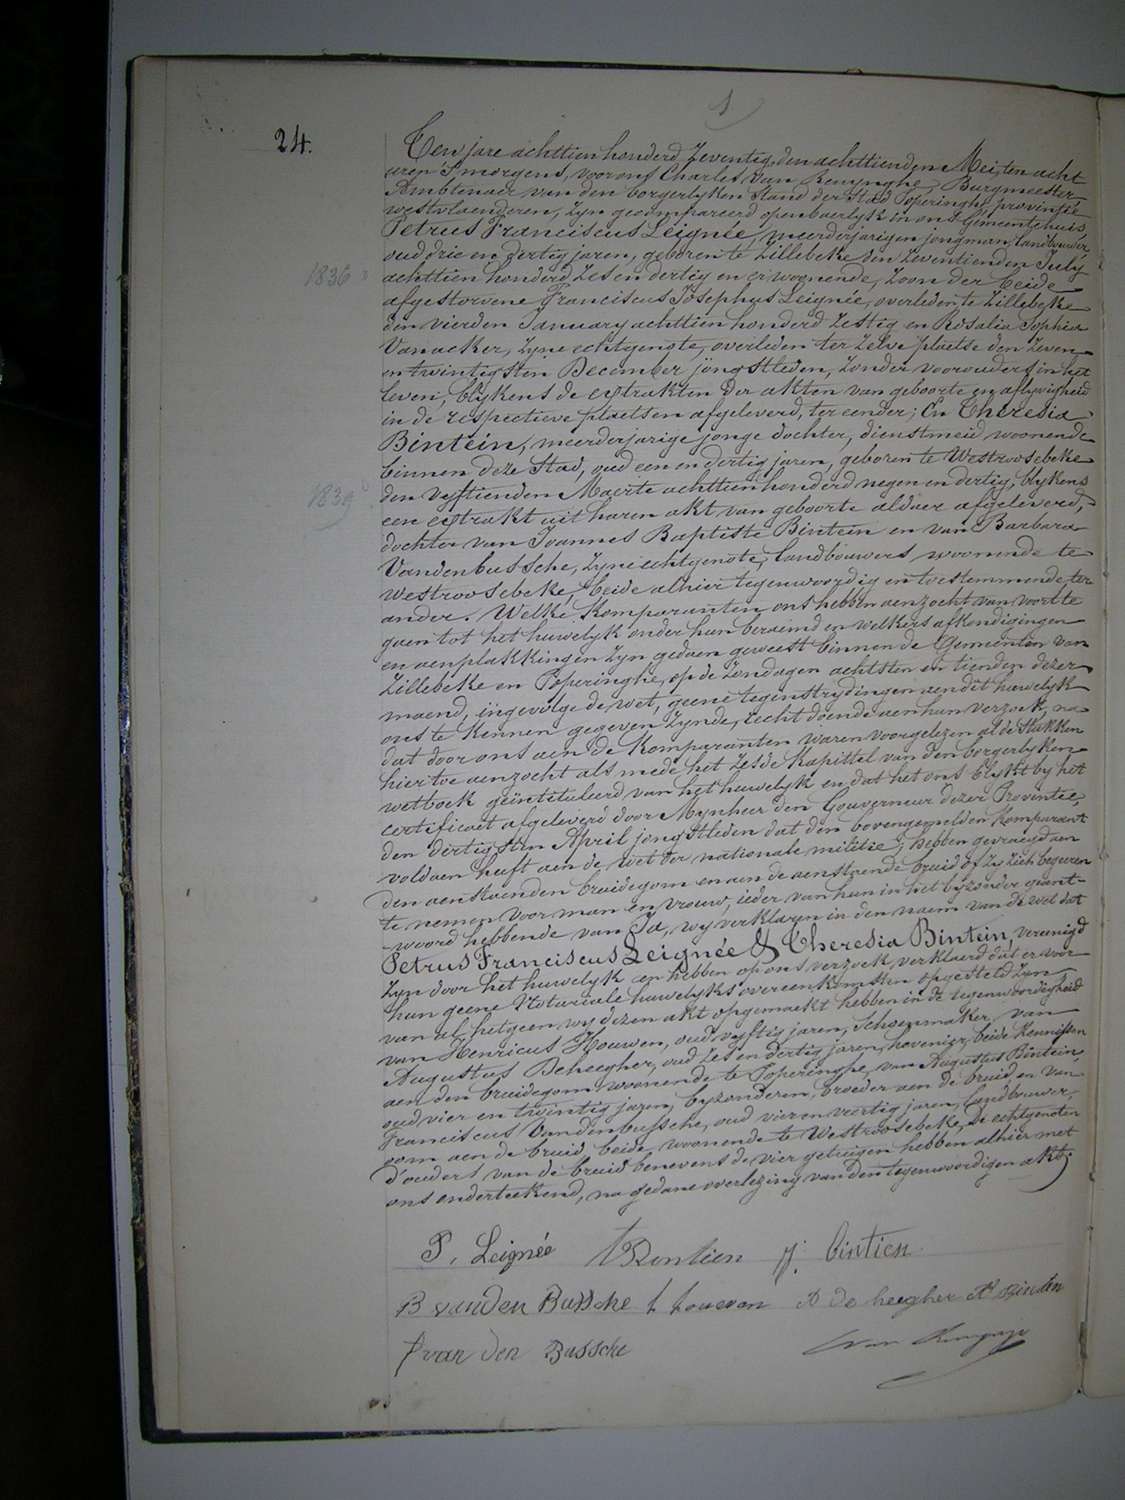 24.
Ten jare achttien honderd Zeventig, den achttienden Mei, ten acht
uren 'smorgens, voor ons Charles van Renynghe, Burgmeester
Amblenaer van den borgerlyken Stand der Stad Poperinghe, provintie
westvlaenderen, zyn gecompareerd openbaerlyk in ons Gemeentehuis
Petrus Franciscus Leignée, meerderjarigen jongman, landbouwer
oud drie en dertig jaren, geboren te Zillebeke den Zeventienden July
1836
achttien honderd Zes en dertig en er woonende, Zoon der beide
afgestorvene Franciscus Josephus Leignée, overleden te Zillebeke
den vierden January achttien honderd Zestig en Rosalia Sophia
Vanacker, Zyne echtgenote, overleden ter Zelve plaetse den Zeven
en twintigsten December jongstleden, Zonder voorouders in het
leven, blykens de extrakten der akten van geboorte en aflyvigheid
in de respectieve plaetsen afgeleverd, ter eender; En Theresia
Bintein, meerderjarige jonge dochter, dienstmeid woonende
binnen deze Stad, oud een en dertig jaren, geboren te Westroosebeke
1839
den vyftienden Maerte achttien honderd negen en dertig, blykens
een extrakt uit haren akt van geboorte aldaer afgeleverd,
dochter van Joannes Baptiste Bintein en van Barbara
Vandenbussche, Zyne echtgenote, landbouwers woonende te
Westroosebeke, beide alhier tegenwoordig en toestemmende ter
ander. Welke komparanten ons hebben aenzocht van voort te
gaen tot het huwelyk onder hun beraemd en welkers afkondigingen
en aenplakkingen zyn gedaen geweest binnen de Gemeenten van
Zillebeke en Poperinghe, op de Zondagen achtsten en tienden dezer
maend, ingevolge de wet, geene tegenstrydingen aen dit huwelyk
ons te kennen gegeven Zynde, recht doende aen hun verzoek, na
dat door ons aen de komparanten waren voorgelezen al de Stukken
hiertoe aenzocht als mede het Zesde kapittel van den borgerlyken
wetboek geïntituleerd van het huwelyk en dat het ons blykt by het
certificaet afgeleverd door Mynheer den Gouverneur dezer Provintie,
den dertigsten April jongstleden dat den bovengemelden komparant
voldaen heeft aen de wet der nationale militie, hebben gevraegd aen
den aenstaenden bruidegom en aen de aenstaende bruid of zy Zich begeeren
te nemen voor man en vrouw, ieder van hun in het byzonder geant-
woord hebbende van Ja, wy verklaren in den naem van de wet dat
Petrus Franciscus Leignée & Theresia Bintein, vereenigd
Zyn door het huwelyk en hebben op ons verzoek verklaerd dat er voor
hun geene Notariale huwelyks overeenkomsten opgesteld Zyn
van al hetgeen wy dezen akt opgemaekt hebben in de tegenwoordigheid
van Henricus Houwen, oud vyftig jaren, Schoenmaker, van
Augustus Deheegher, oud Zes en dertig jaren, hovenier, beide kennissen
aen den bruidegom, woonende te Poperinghe, van Augustus Bintein,
oud vier en twintig jaren, byzonderen, broeder aen de bruid en van
Franciscus Vandenbussche, oud vier en veertig jaren, landbouwer,
oom aen de bruid, beide woonende te Westroosebeke, de echtgenoten
d'ouders van de bruid benevens de vier getuigen hebben alhier met
ons onderteekend, na gedane overlezing van den tegenwoordigen akt,
P. Leignée T Bentien J: bintien
B vanden Bussche h houwen A de heegher A Bintein
f van den Bussche